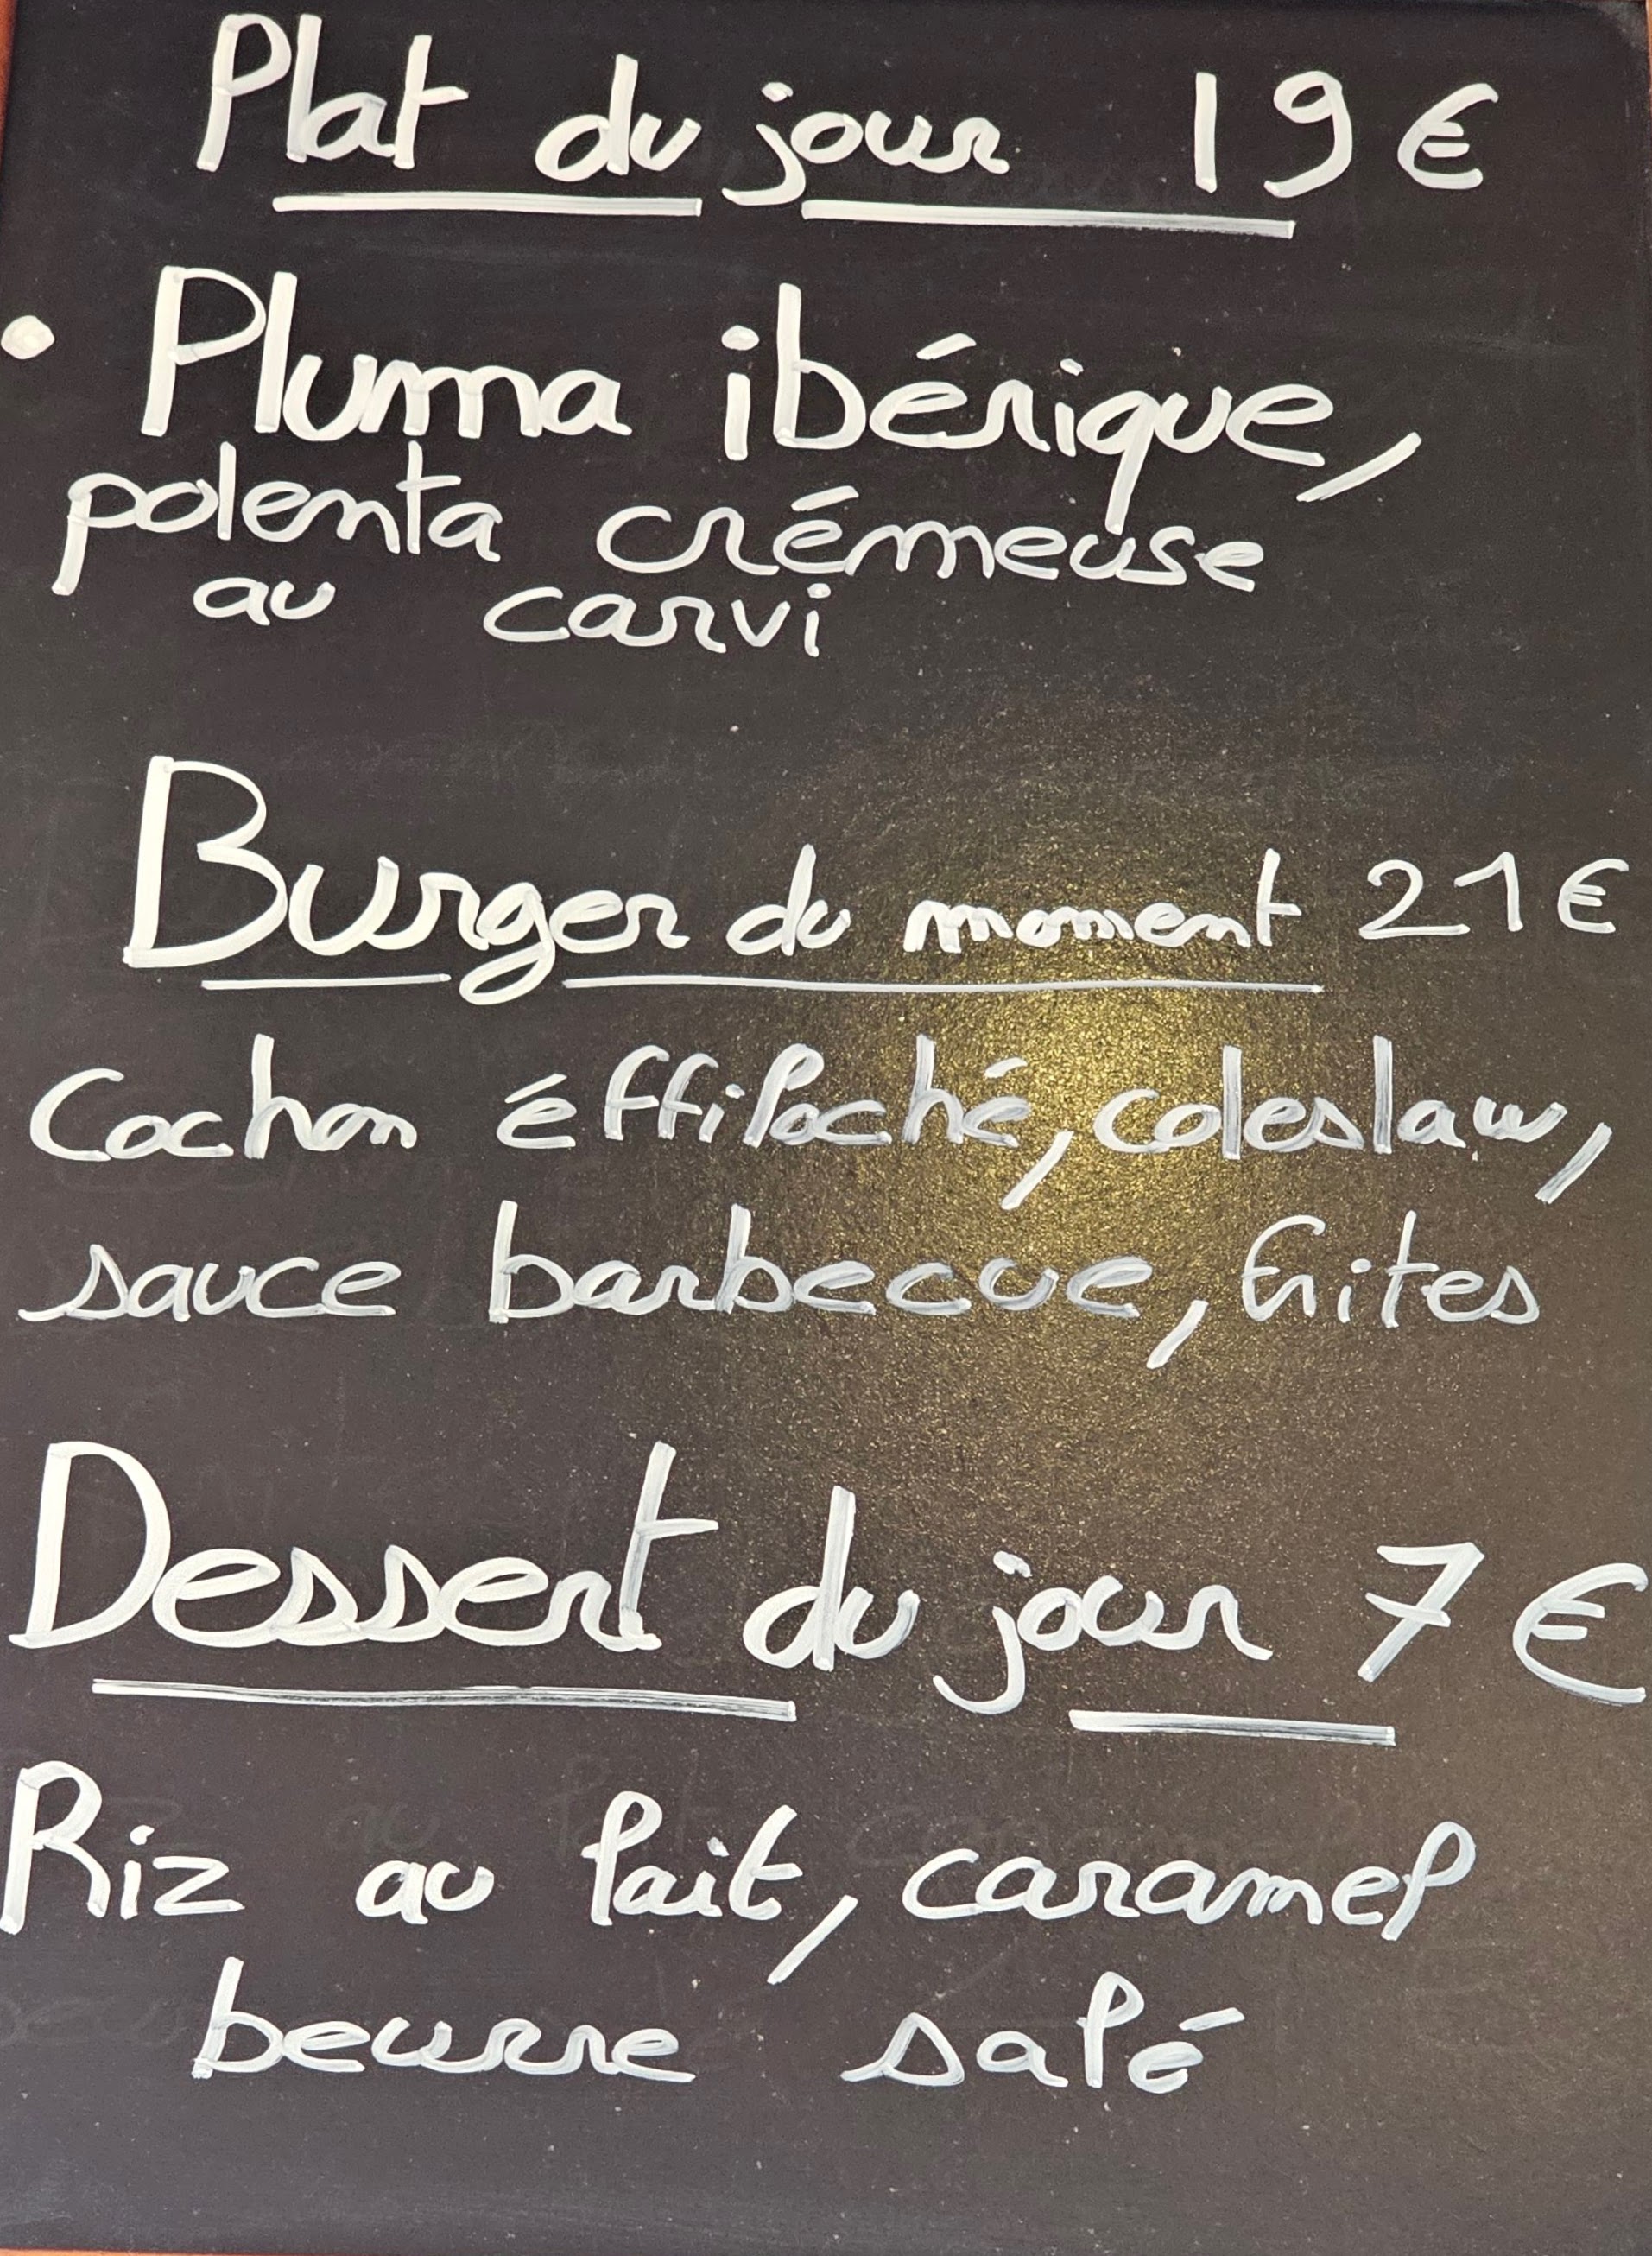 Plat du jour 19€
• Pluma ibérique,
polenta crémeuse
au carvi
Burger du moment 21€
Cochon éffiloché, coleslaw,
sauce barbecue, frites
Dessert du jour 7€
Riz au lait, caramel
beurre salé